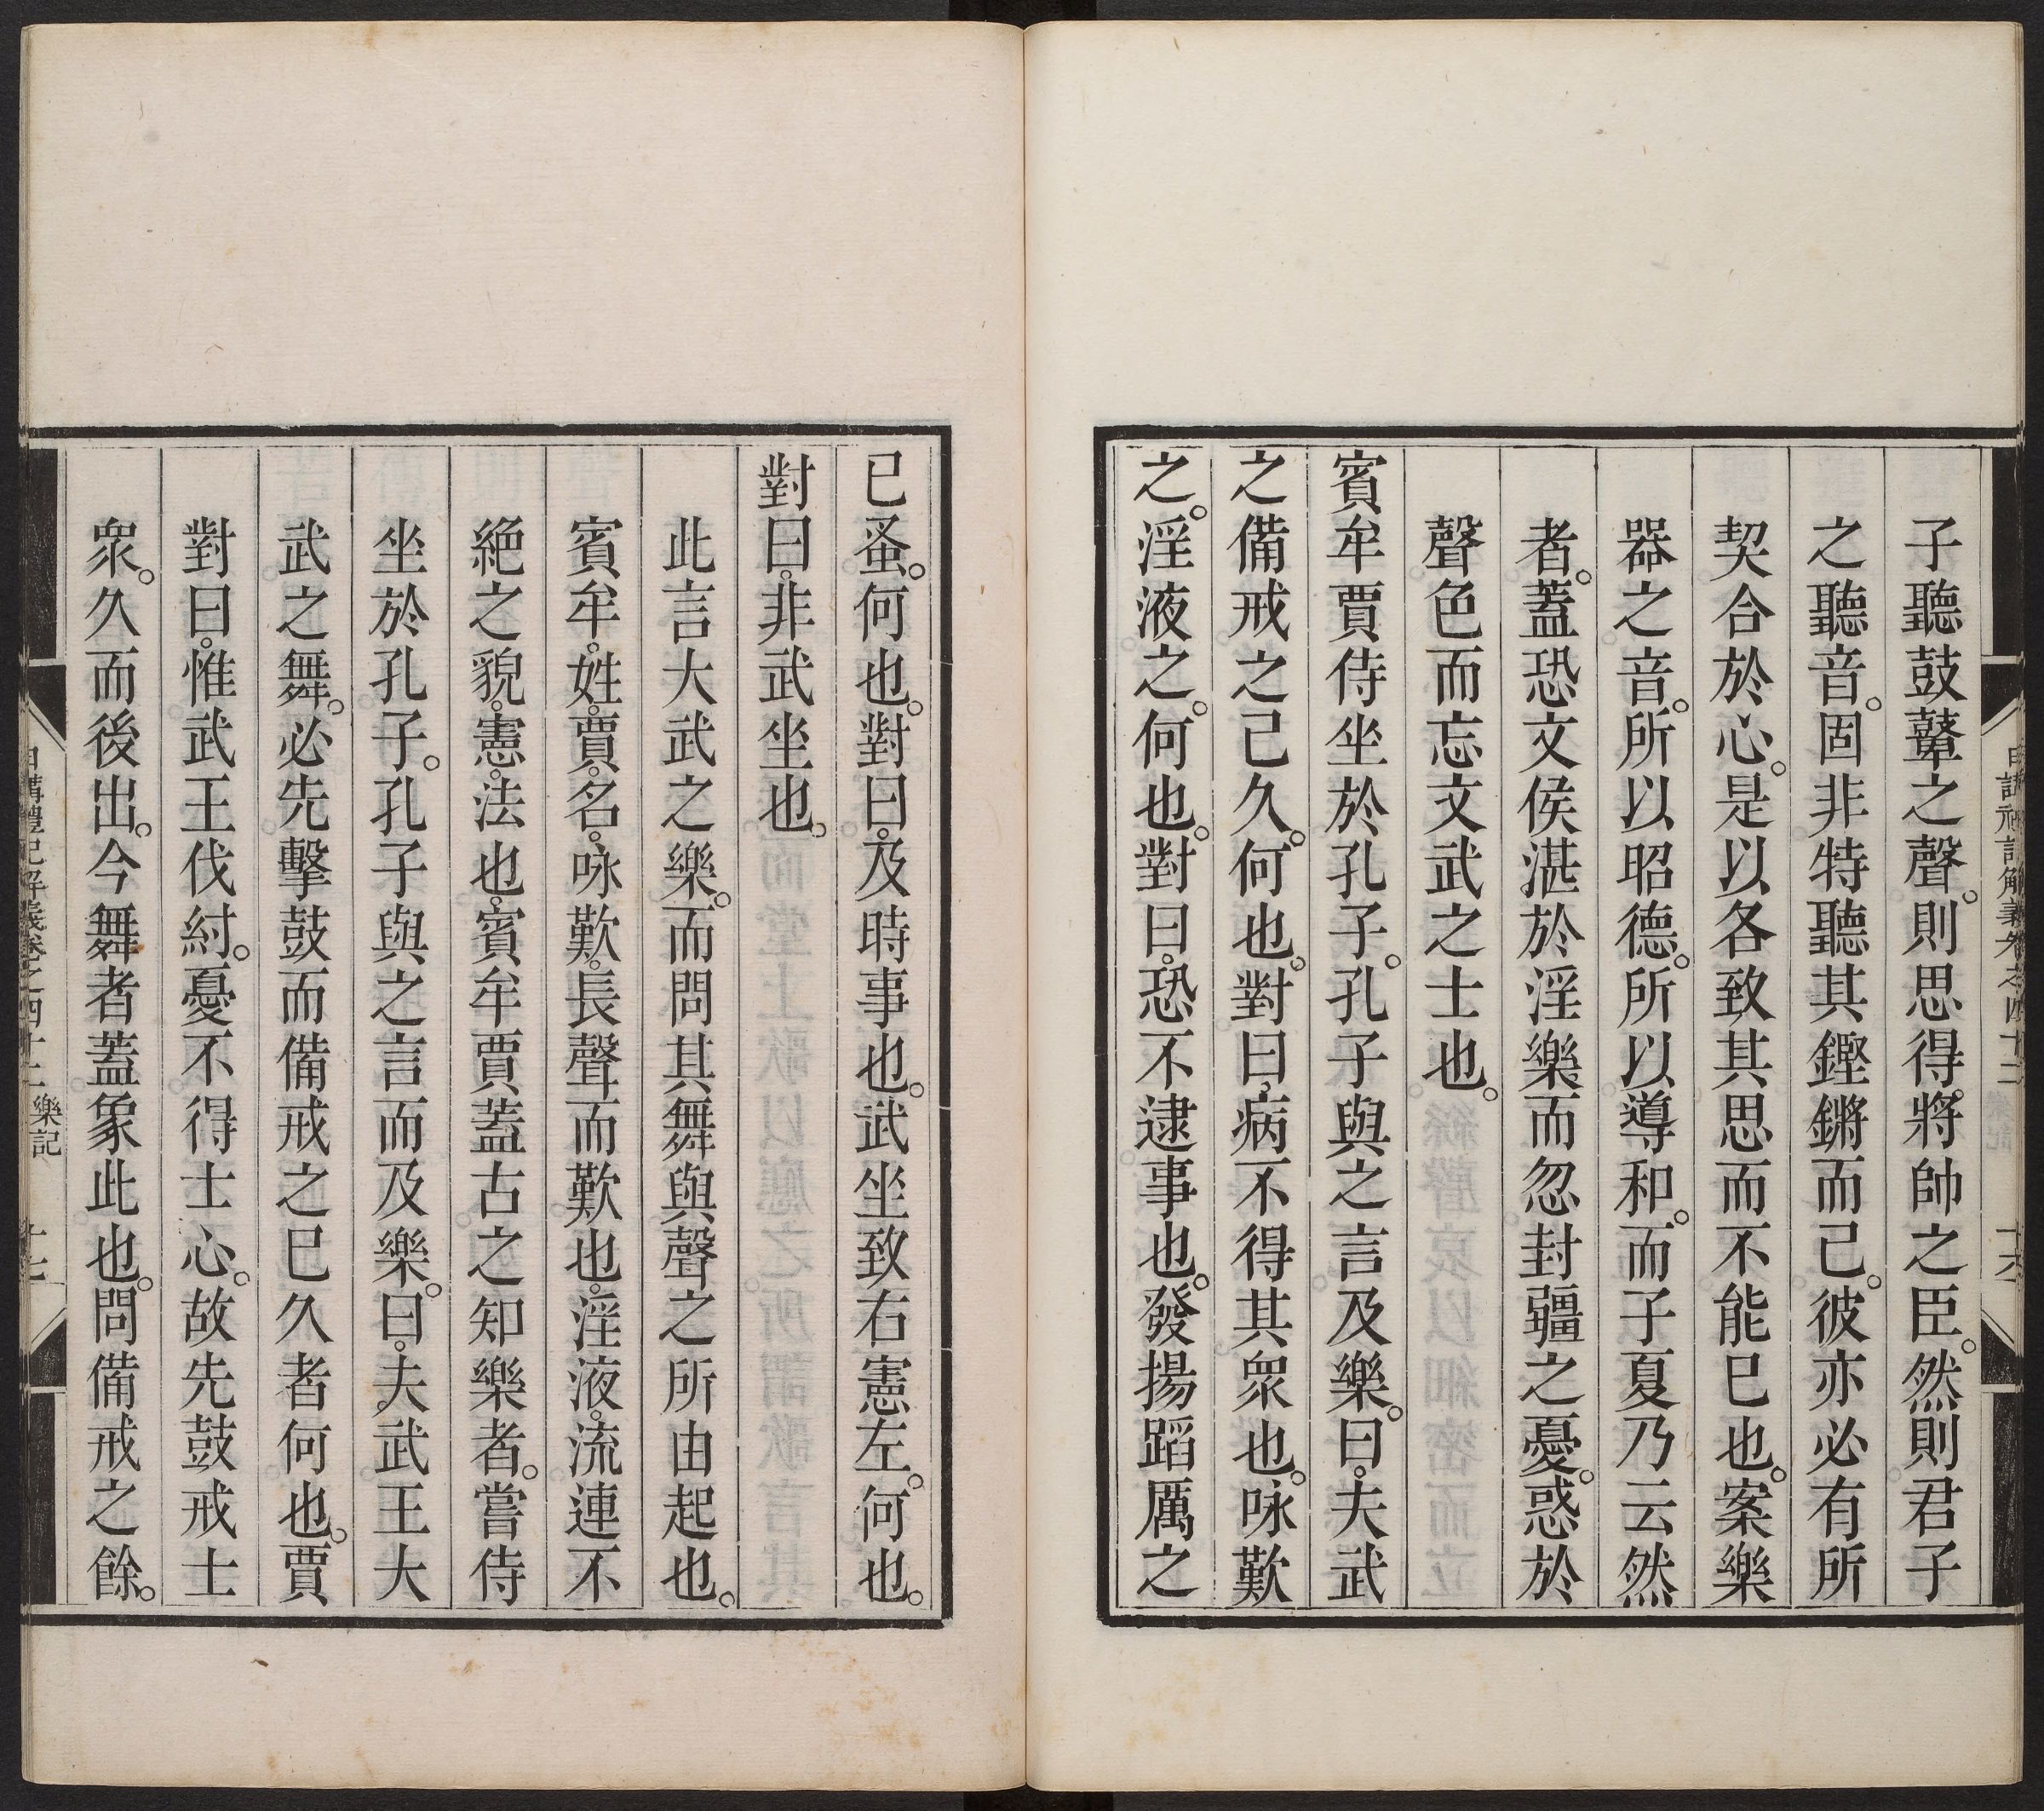 子聽鼓鼙之聲。則思得。將帥之臣。然則君子
之聽音。固非特聽其鏗鏘而己。彼亦必有所
契合於心。是以各致其思而不能巳也。案樂
器之音。所以昭德。所以導和。而子夏乃云然
者。蓋恐文侯湛於淫樂而忽封疆之憂。惑於
聲色而忘文武之士也。
賓牟賈侍坐於孔子。孔子與之言及樂。曰。夫武
之備戒之己久。何也。對曰。病不得其衆也。咏歎
之。淫液之。何也。對曰。恐不逮事也。發揚蹈厲之
日講禮記解義卷之四十二 樂記 十六
已蚤。何也。對曰。及時事也。武坐致右憲左。何也。
對曰。非武坐也。
此言大武之樂。而問其舞與聲之所由起也。
賓牟。姓。賈。名。咏歎。長聲而歎也。淫液。流連不
絕之貌。憲。法也。賓牟賈蓋古之知樂者。嘗侍
坐於孔子。孔子與之言而及樂。曰。夫。武王大
武之舞。必先擊鼓而備戒之巳久者何也。賈
對曰。惟武王伐紂。憂不得士心。故先鼓戒士
衆。久而後出。今舞者蓋象此也。問備戒之餘。
日講禮記解義卷之四十二 樂記 十七